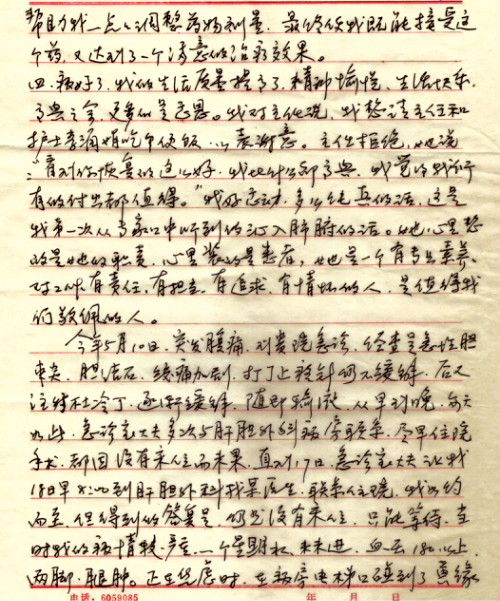 帮助我一点一点调整药物剂量，最终使我既能接受这
个药，又达到了一个满意的治疗效果。
四、病好了，我的生活质量提高了，精神愉悦，生活快乐，
高兴之余，更多的是感恩。我对主任说，我想请主任和
护士李浦娟吃个便饭，以表谢意。主任拒绝，她说
："看到你恢复的这么好，我比什么都高兴，我觉得我所
有的付出都值得。"我好感动，多么纯真的话，这是
我第一次从专家口中听到的沁入肺腑的话。她心里想
的是她的职责，心里装的是患者，她是一个有专业素养、
对工作有责任，有担当，有追求，有情怀的人，是值得我
们敬佩的人。
今年5月10日，突发腹痛，到贵院急诊，经查是急性胆
囊炎，胆结石，绞痛加剧，打了止疼针仍不缓解，后又
注射杜冷丁，逐渐缓解，随即输液，从早到晚，每天
如此，急诊室大夫多次与肝胆外科病房联系，尽早住院
手术，却因没有床位而未果，直到17日，急诊室大夫让我
18日早8:00到肝胆外科找某医生，联系住院，我如约
而至，但得到的答复是，仍然没有床位，只能等待，当
时我的病情较严重，一个星期水米未进，血压180以上，
两脚、眼肿。正在焦虑时，在病房电梯口碰到了黄缘
电话：6059085 年 月 日